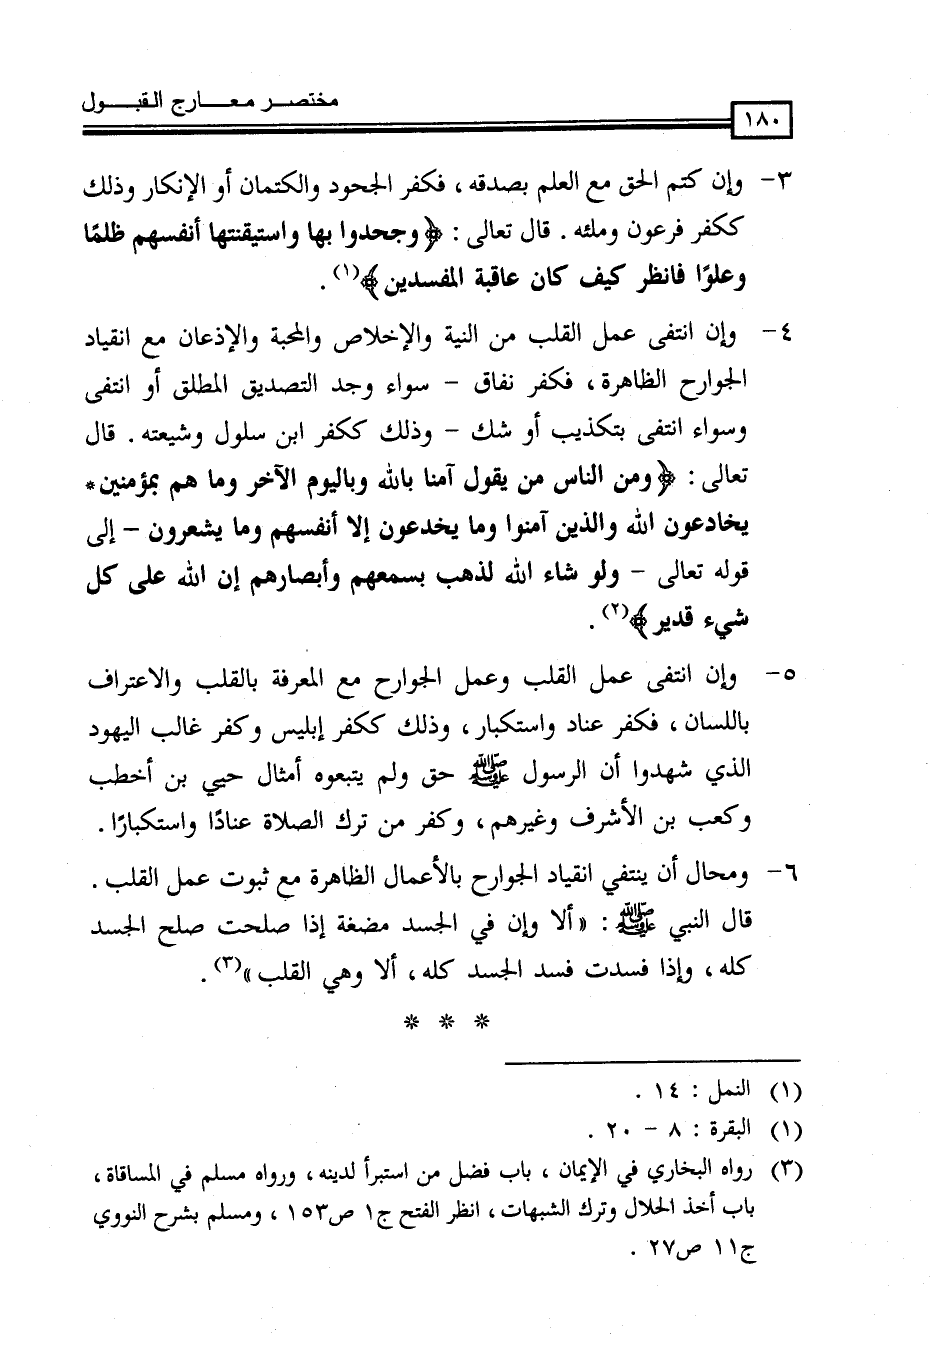 مختصر معارج القبول
١٨٠
٣- وإن كتم الحق مع العلم بصدقه ، فكفر الجحود والكتمان أو الإنكار وذلك
ككفر فرعون وملئه . قال تعالى : ﴿وجحدوا بها واستيقنتها أنفسهم ظلمًا
وعلوًا فانظر كيف كان عاقبة المفسدين﴾(١) .
٤- وإن انتفى عمل القلب من النية والإخلاص والمحبة والإذعان مع انقياد
الجوارح الظاهرة ، فكفر نفاق - سواء وجد التصديق المطلق أو انتفى
وسواء انتفى بتكذيب أو شك - وذلك ككفر ابن سلول وشيعته . قال
تعالى : ﴿ومن الناس من يقول آمنا بالله وباليوم الآخر وما هم بمؤمنين*
يخادعون الله والذين آمنوا وما يخدعون إلا أنفسهم وما يشعرون - إلى
قوله تعالى - ولو شاء الله لذهب بسمعهم وأبصارهم إن الله على كل
شيء قدير﴾(٢) .
٥- وإن انتفى عمل القلب وعمل الجوارح مع المعرفة بالقلب والاعتراف
باللسان ، فكفر عناد واستكبار ، وذلك ككفر إبليس وكفر غالب اليهود
الذي شهدوا أن الرسول ﷺ حق ولم يتبعوه أمثال حيي بن أخطب
وكعب بن الأشرف وغيرهم ، وكفر من ترك الصلاة عنادًا واستكبارًا .
٦- ومحال أن ينتفي انقياد الجوارح بالأعمال الظاهرة مع ثبوت عمل القلب .
قال النبي ﷺ : «ألا وإن في الجسد مضغة إذا صلحت صلح الجسد
كله ، وإذا فسدت فسد الجسد كله ، ألا وهي القلب»(٣) .
* * *
(١) النمل : ١٤ .
(١) البقرة : ٨ - ٢٠ .
(٣) رواه البخاري في الإيمان ، باب فضل من استبرأ لدينه ، ورواه مسلم في المساقاة ،
باب أخذ الحلال وترك الشبهات ، انظر الفتح ج١ ص١٥٣ ، ومسلم بشرح النووي
ج١١ ص٢٧ .